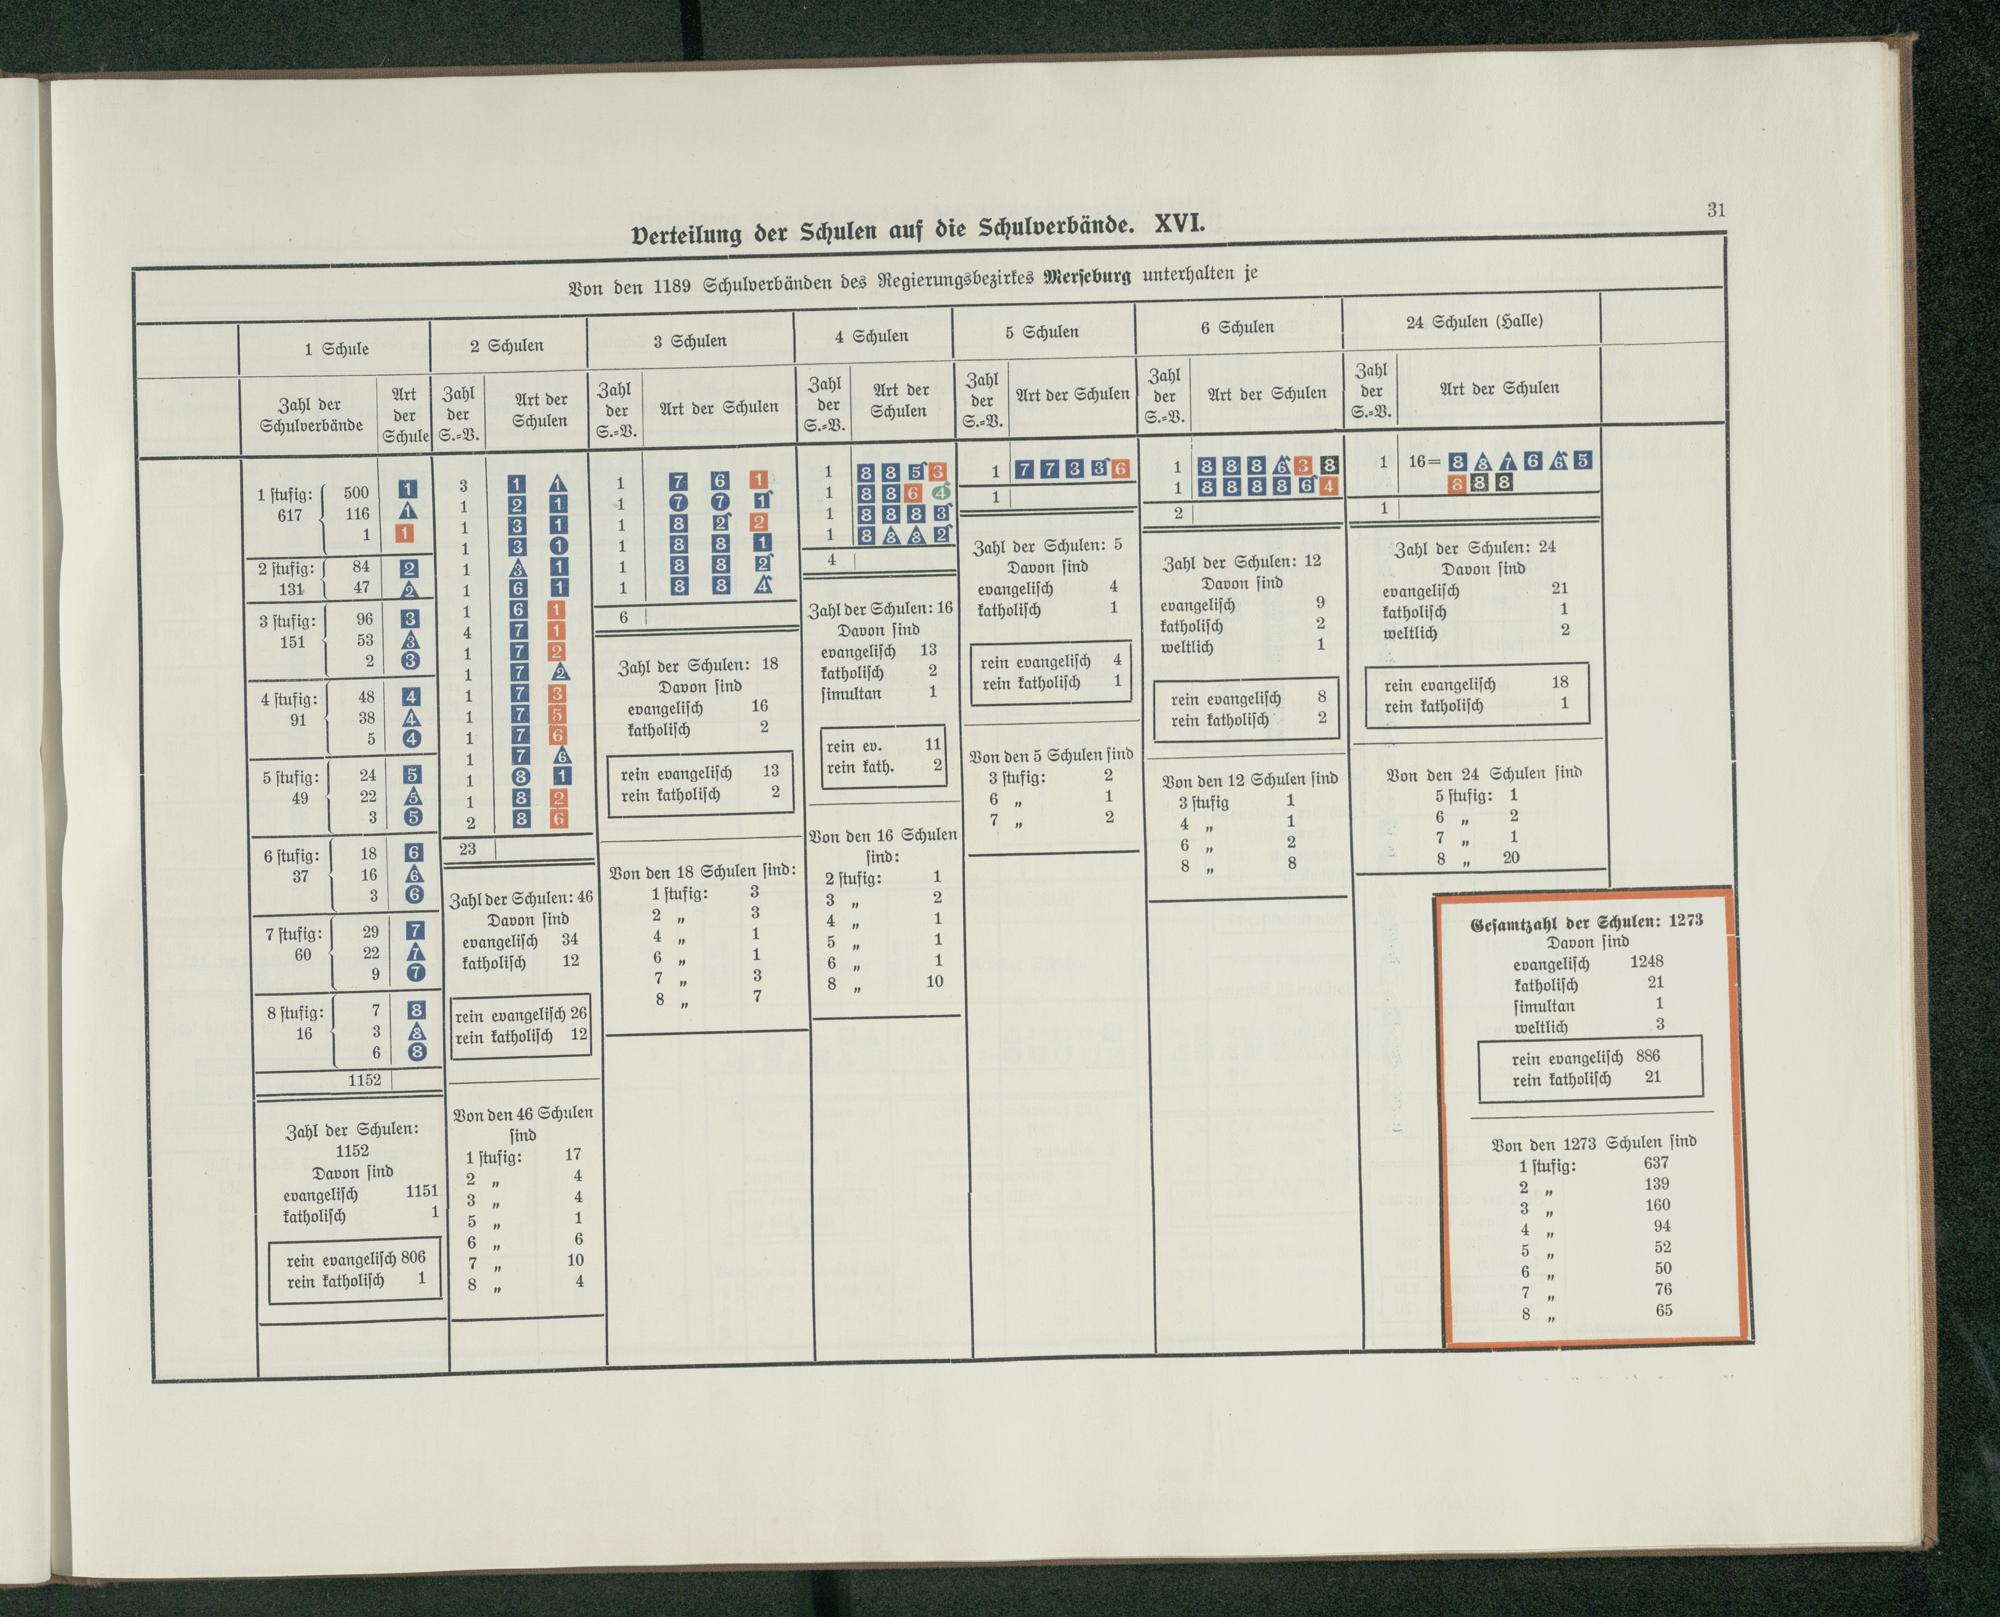 31
Verteilung der Schulen auf die Schulverbände. XVI.
Von den 1189 Schulverbänden des Regierungsbezirkes Merseburg unterhalten je
1 Schule
Zahl der Schulverbände
Art der Schule
1 stufig: 617
500 1
116 1
1 1
2 stufig: 131
84 2
47 2
3 stufig: 151
96 3
53 3
2 3
4 stufig: 91
48 4
38 4
5 4
5 stufig: 49
24 5
22 5
3 5
6 stufig: 37
18 6
16 6
3 6
7 stufig: 60
29 7
22 7
9 7
8 stufig: 16
7 8
3 8
6 8
1152
Zahl der Schulen:
1152
Davon sind
evangelisch 1151
katholisch 1
rein evangelisch 806
rein katholisch 1
2 Schulen
Zahl der S.=V.
Art der Schulen
3 1 1
1 2 1
1 3 1
1 3 1
1 3 1
1 6 1
1 6 1
4 7 1
1 7 2
1 7 2
1 7 3
1 7 5
1 7 6
1 7 6
1 8 1
1 8 2
2 8 6
23
Zahl der Schulen: 46
Davon sind
evangelisch 34
katholisch 12
rein evangelisch 26
rein katholisch 12
Von den 46 Schulen
sind
1 stufig: 17
2 „ 4
3 „ 4
5 „ 1
6 „ 6
7 „ 10
8 „ 4
3 Schulen
Zahl der S.=V.
Art der Schulen
1 7 6 1
1 7 7 1
1 8 2 2
1 8 8 1
1 8 8 2
1 8 8 4
6
Zahl der Schulen: 18
Davon sind
evangelisch 16
katholisch 2
rein evangelisch 13
rein katholisch 2
Von den 18 Schulen sind:
1 stufig: 3
2 „ 3
4 „ 1
6 „ 1
7 „ 3
8 „ 7
4 Schulen
Zahl der S.=V.
Art der Schulen
1 8 8 5 3
1 8 8 6 4
1 8 8 8 3
1 8 8 8 2
4
Zahl der Schulen: 16
Davon sind
evangelisch 13
katholisch 2
simultan 1
rein ev. 11
rein kath. 2
Von den 16 Schulen
sind:
2 stufig: 1
3 „ 2
4 „ 1
5 „ 1
6 „ 1
8 „ 10
5 Schulen
Zahl der S.=V.
Art der Schulen
1 7 7 3 3 6
1
Zahl der Schulen: 5
Davon sind
evangelisch 4
katholisch 1
rein evangelisch 4
rein katholisch 1
Von den 5 Schulen sind
3 stufig: 2
6 „ 1
7 „ 2
6 Schulen
Zahl der S.=V.
Art der Schulen
1 8 8 8 6 3 8
1 8 8 8 8 6 4
2
Zahl der Schulen: 12
Davon sind
evangelisch 9
katholisch 2
weltlich 1
rein evangelisch 8
rein katholisch 2
Von den 12 Schulen sind
3 stufig 1
4 „ 1
6 „ 2
8 „ 8
24 Schulen (Halle)
Zahl der S.=V.
Art der Schulen
1 16= 8 8 7 6 6 5
8 8 8
1
Zahl der Schulen: 24
Davon sind
evangelisch 21
katholisch 1
weltlich 2
rein evangelisch 18
rein katholisch 1
Von den 24 Schulen sind
5 stufig: 1
6 „ 2
7 „ 1
8 „ 20
Gesamtzahl der Schulen: 1273
Davon sind
evangelisch 1248
katholisch 21
simultan 1
weltlich 3
rein evangelisch 886
rein katholisch 21
Von den 1273 Schulen sind
1 stufig: 637
2 „ 139
3 „ 160
4 „ 94
5 „ 52
6 „ 50
7 „ 76
8 „ 65